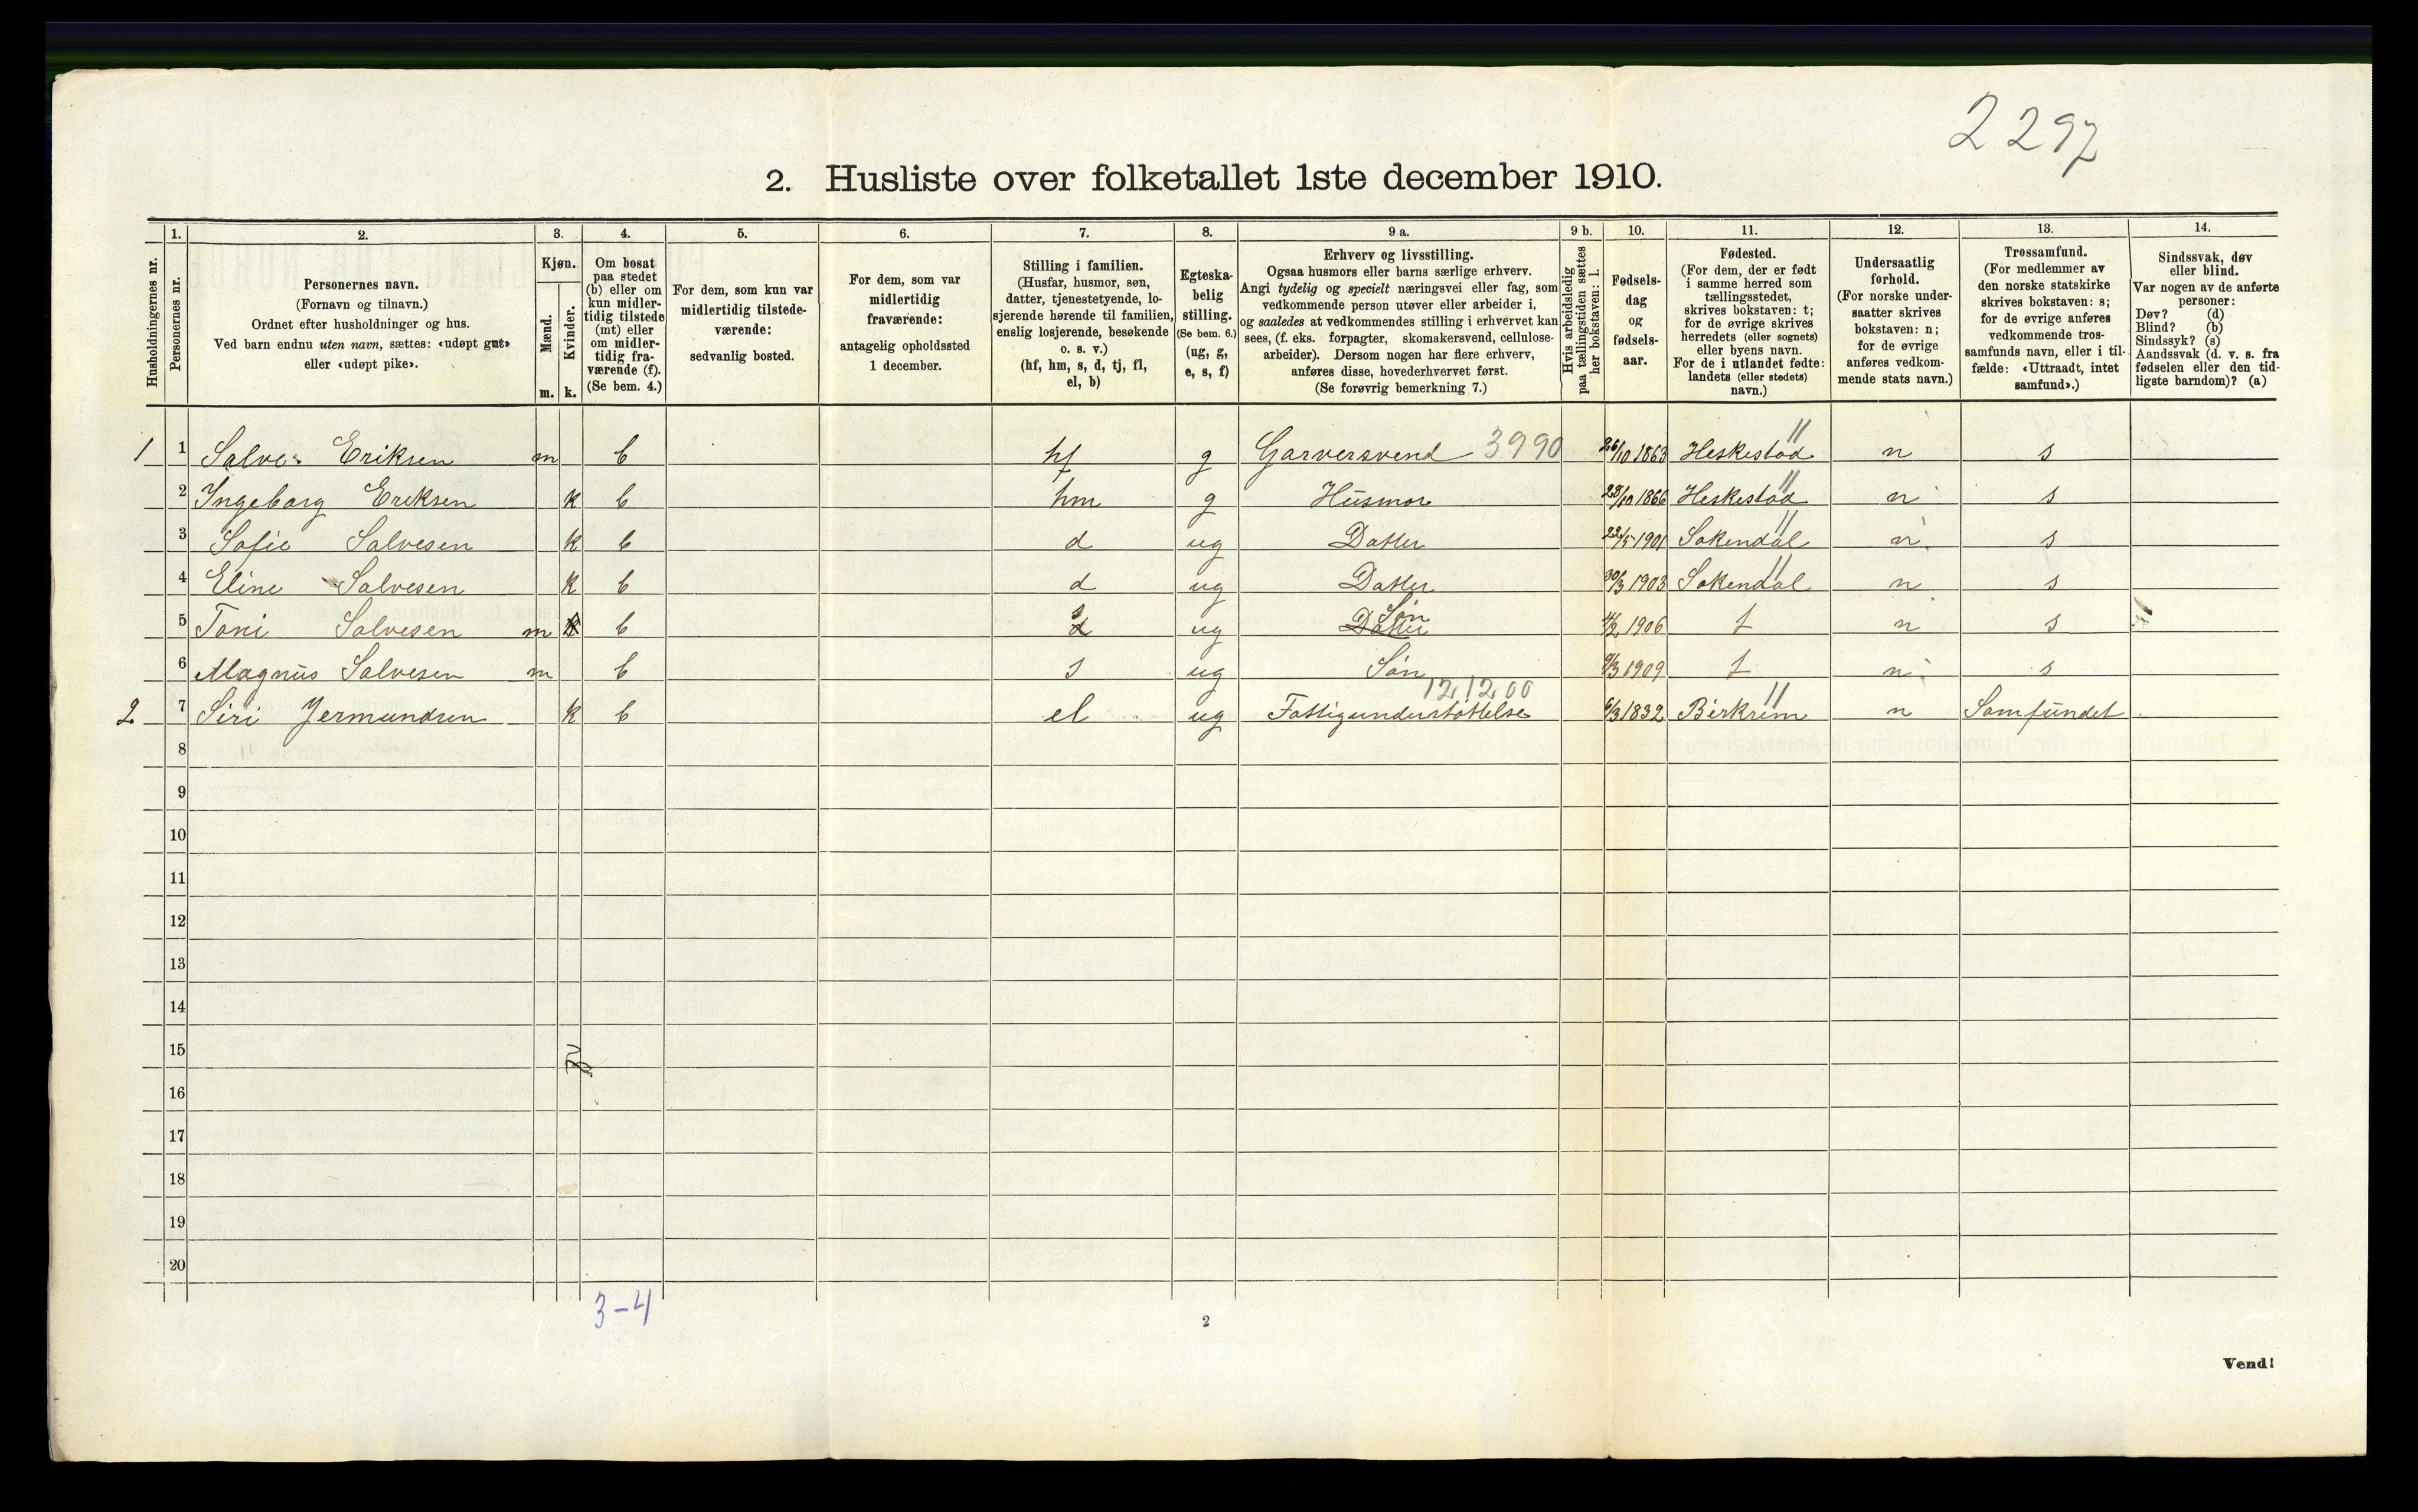 2297
2. Husliste over folketallet 1ste december 1910.
Husholdningernes nr.
1. Personernes nr.
2. Personernes navn. (Fornavn og tilnavn.) Ordnet efter husholdninger og hus. Ved barn endnu uten navn, sættes: «udøpt gut» eller «udøpt pike».
3. Kjøn. Mænd. m. Kvinder. k.
4. Om bosat paa stedet (b) eller om kun midlertidig tilstede (mt) eller om midlertidig fraværende (f). (Se bem. 4.)
5. For dem, som kun var midlertidig tilstedeværende: sedvanlig bosted.
6. For dem, som var midlertidig fraværende: antagelig opholdssted 1 december.
7. Stilling i familien. (Husfar, husmor, søn, datter, tjenestetyende, losjerende hørende til familien, enslig losjerende, besøkende o. s. v.) (hf, hm, s, d, tj, fl, el, b)
8. Egteskabelig stilling. (Se bem. 6.) (ug, g, e, s, f)
9 a. Erhverv og livsstilling. Ogsaa husmors eller barns særlige erhverv. Angi tydelig og specielt næringsvei eller fag, som vedkommende person utøver eller arbeider i, og saaledes at vedkommendes stilling i erhvervet kan sees, (f. eks. forpagter, skomakersvend, cellulosearbeider). Dersom nogen har flere erhverv, anføres disse, hovederhvervet først. (Se forøvrig bemerkning 7.)
9 b. Hvis arbeidsledig paa tællingstiden sættes her bokstaven: l.
10. Fødselsdag og fødselsaar.
11. Fødested. (For dem, der er født i samme herred som tællingsstedet, skrives bokstaven: t; for de øvrige skrives herredets (eller sognets) eller byens navn. For de i utlandet fødte: landets (eller stedets) navn.)
12. Undersaatlig forhold. (For norske undersaatter skrives bokstaven: n; for de øvrige anføres vedkommende stats navn.)
13. Trossamfund. (For medlemmer av den norske statskirke skrives bokstaven: s; for de øvrige anføres vedkommende trossamfunds navn, eller i tilfælde: «Uttraadt, intet samfund».)
14. Sindssvak, døv eller blind. Var nogen av de anførte personer: Døv? (d) Blind? (b) Sindssyk? (s) Aandssvak (d. v. s. fra fødselen eller den tidligste barndom)? (a)
1 1 Salve Eriksen m b hf g Garversvend 3990 26/10 1863 Heskestad n s
2 Ingeborg Eriksen k b hm g Husmor 28/10 1866 Heskestad n s
3 Sofie Salvesen k b d ug Datter 22/5 1901 Sokendal n s
4 Eline Salvesen k b d ug Datter 30/3 1903 Sokendal n s
5 Toni Salvesen m k b s d ug Datter Søn 1906 t n s
6 Magnus Salvesen m b s ug Søn 9/3 1909 t n s
12,12,00
2 7 Siri Jermundsen k b el ug Fattigunderstøttelse 6/3 1832 Birkrem n Samfundet
8
9
10
11
12
13
14
15
16
17
18
19
20
3-4
2
Vend!